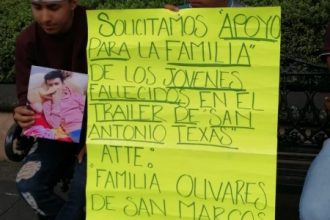 SOLICITAMOS "APOYO
PARA LA FAMILIA"
DE LOS JOVENES
FALLECIDOS EN EL
TRAILER DE "SAN
ANTONIO TEXAS"
ATTE:
FAMILIA OLIVARES
DE SAN MARCOS